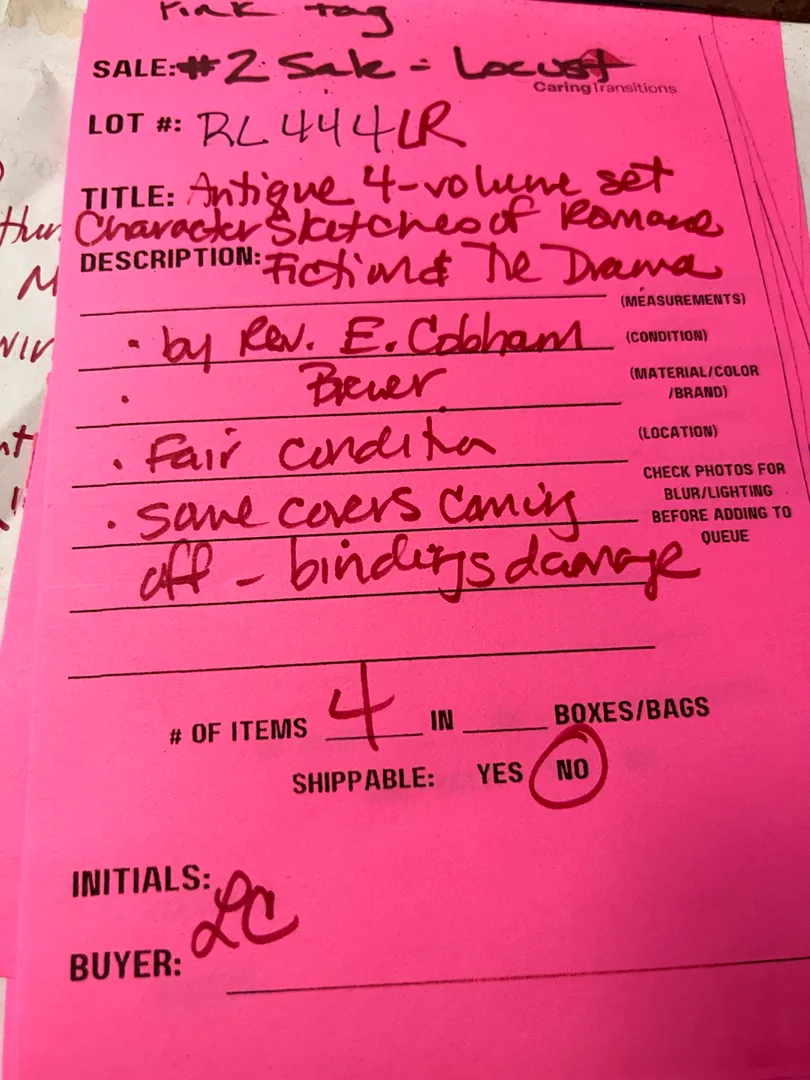 Pink tag
SALE: #2 Sale - Locust
CaringTransitions
LOT #: RL444LR
TITLE: Antique 4-volume set
Character Sketches of Romance
DESCRIPTION: Fiction & The Drama
(MEASUREMENTS)
• by Rev. E. Cobham
(CONDITION)
• Brewer
(MATERIAL/COLOR
/BRAND)
• Fair condition
(LOCATION)
• some covers coming
off - bindings damage
CHECK PHOTOS FOR
BLUR/LIGHTING
BEFORE ADDING TO
QUEUE
# OF ITEMS 4 IN BOXES/BAGS
SHIPPABLE: YES NO
INITIALS: LC
BUYER: